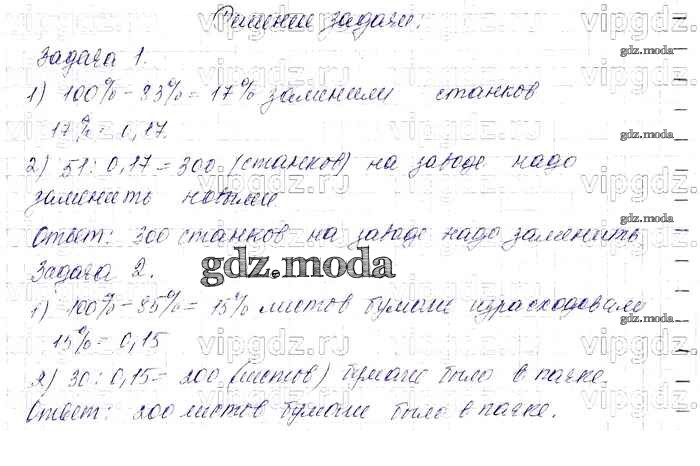 Решение задачи:
Задача 1.
1) 100% - 83% = 17% заменили станков
17% = 0,17.
2) 51 : 0,17 = 300 (станков) на заводе надо
заменить новыми
Ответ: 300 станков на заводе надо заменить
Задача 2.
gdz.moda
1) 100% - 85% = 15% листов бумаги израсходовали
15% = 0,15
2) 30 : 0,15 = 200 (листов) бумаги было в пачке.
Ответ: 200 листов бумаги было в пачке.
vipgdz.ru
gdz.moda